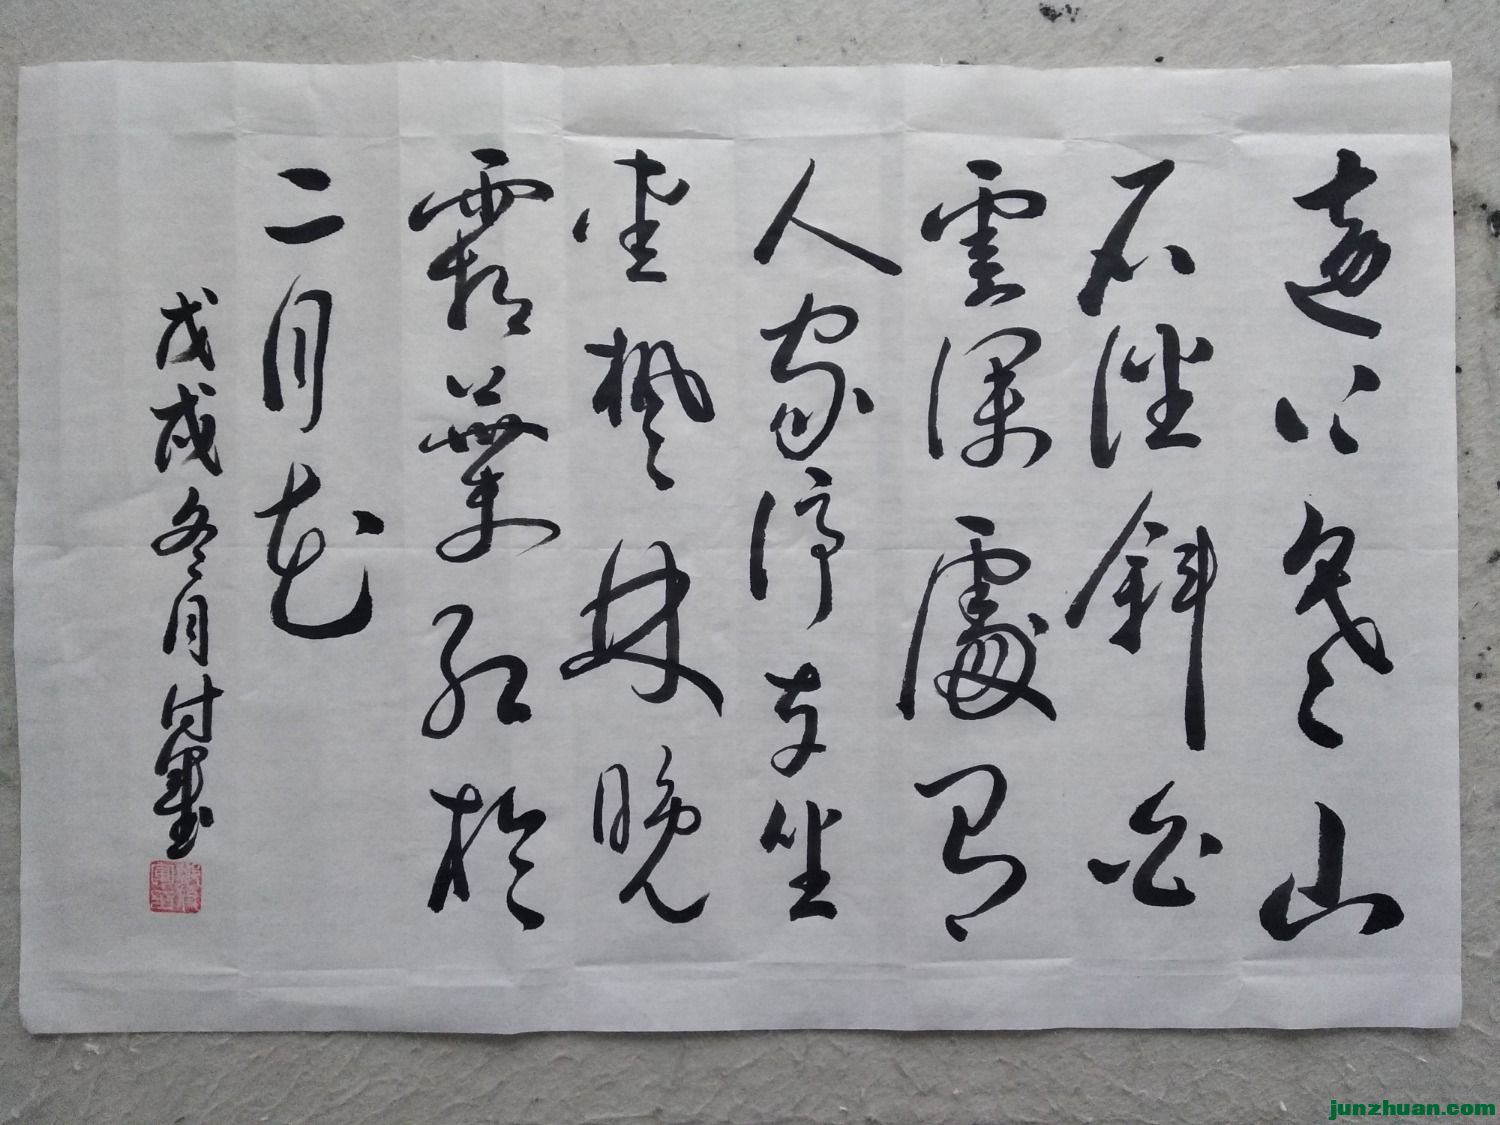 遠上寒山
石徑斜白
雲深處有
人家停车坐
愛楓林晚
霜葉紅於
二月花
戊戌冬月付
junzhuan.com